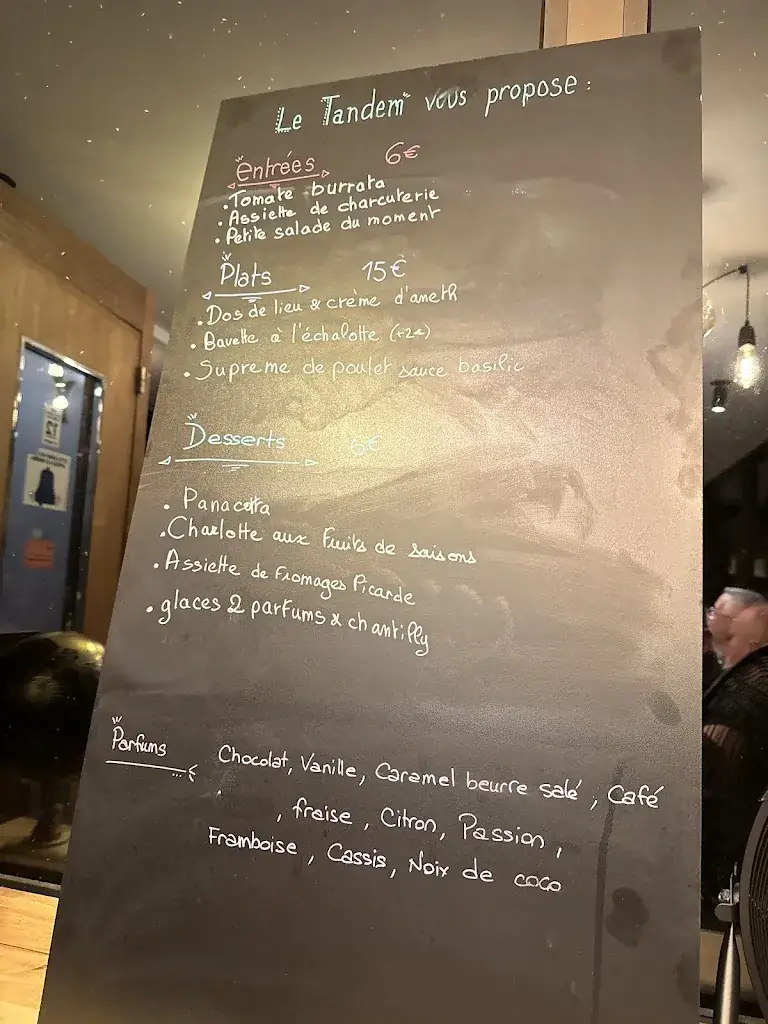 Le Tandem vous propose :
entrées 6€
. Tomate burrata
. Assiette de charcuterie
. Petite salade du moment
Plats 15€
. Dos de lieu & crème d'aneth
. Bavette à l'échalotte (+2€)
. Supreme de poulet sauce basilic
Desserts 6€
. Panacotta
. Charlotte aux Fruits de saisons
. Assiette de Fromages Picarde
. glaces 2 parfums & chantilly
Parfums
Chocolat, Vanille, Caramel beurre salé, Café
, fraise, Citron, Passion,
Framboise, Cassis, Noix de coco